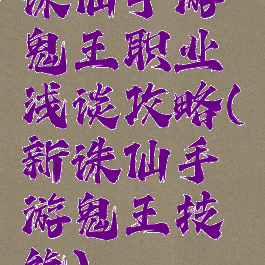 诛仙手游
鬼王职业
浅谈攻略(
新诛仙手
游鬼王技
能)